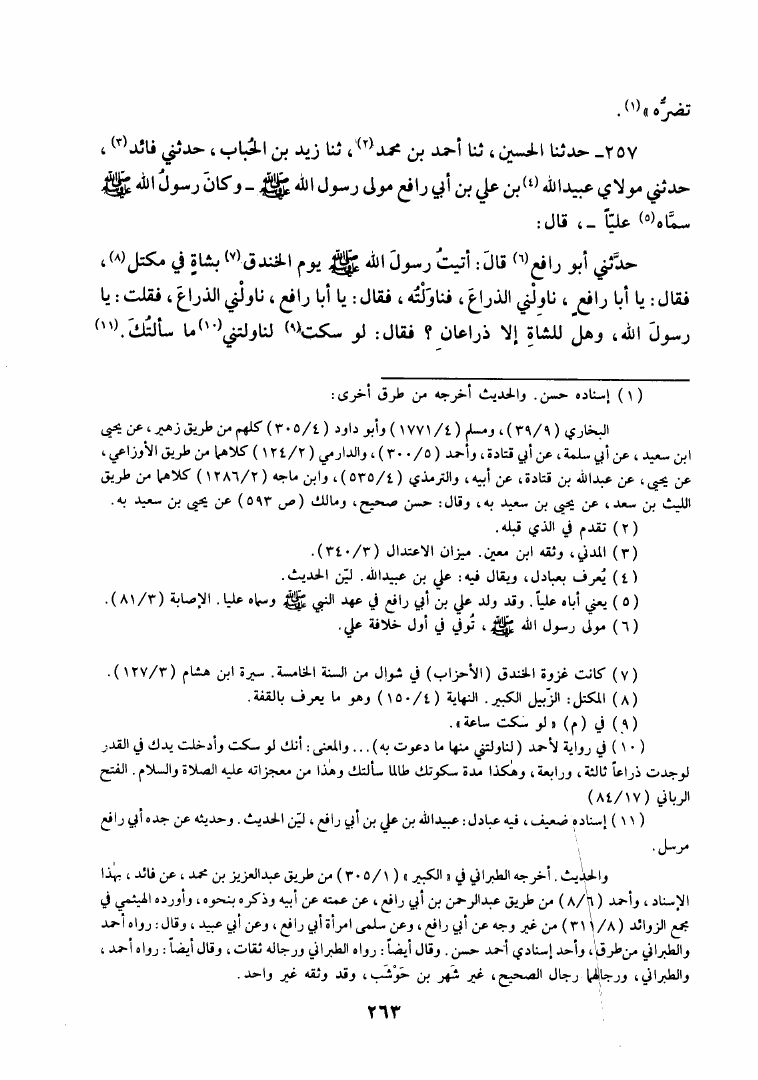 تضرُّه »(١).
٢٥٧ـ حدثنا الحسين، ثنا أحمد بن محمد(٢)، ثنا زيد بن الحُباب، حدثني فائد(٣)،
حدثني مولاي عبيدالله(٤) بن علي بن أبي رافع مولى رسول الله ﷺ ـ وكانَ رسولُ الله ﷺ
سمَّاه(٥) عليّاً ـ، قال:
حدَّثني أبو رافع(٦) قالَ: أتيتُ رسولَ الله ﷺ يوم الخندق(٧) بشاةٍ في مكتل(٨)،
فقال: يا أبا رافعٍ، ناوِلْني الذراعَ، فناوَلْتُه، فقال: يا أبا رافع، ناولْني الذراعَ، فقلت: يا
رسولَ الله، وهل للشاةِ إلا ذراعان؟ فقال: لو سكت(٩) لناولتني(١٠) ما سألتُكَ.(١١)
(١) إسناده حسن. والحديث أخرجه من طرق أخرى:
البخاري (٣٩/٩)، ومسلم (١٧٧١/٤) وأبو داود (٣٠٥/٤) كلهم من طريق زهير، عن يحيى
ابن سعيد، عن أبي سلمة، عن أبي قتادة، وأحمد (٣٠٠/٥)، والدارمي (١٢٤/٢) كلاهما من طريق الأوزاعي،
عن يحيى، عن عبدالله بن قتادة، عن أبيه، والترمذي (٥٣٥/٤)، وابن ماجه (١٢٨٦/٢) كلاهما من طريق
الليث بن سعد، عن يحيى بن سعيد به، وقال: حسن صحيح، ومالك (ص ٥٩٣) عن يحيى بن سعيد به.
(٢) تقدم في الذي قبله.
(٣) المدني، وثقه ابن معين. ميزان الاعتدال (٣٤٠/٣).
(٤) يُعرف بعبادل، ويقال فيه: علي بن عبيدالله. ليّن الحديث.
(٥) يعني أباه علياً. وقد ولد علي بن أبي رافع في عهد النبي ﷺ وسماه عليا. الإصابة (٨١/٣).
(٦) مولى رسول الله ﷺ، تُوفي في أول خلافة علي.
(٧) كانت غزوة الخندق (الأحزاب) في شوال من السنة الخامسة. سيرة ابن هشام (١٢٧/٣).
(٨) المكتل: الزّبيل الكبير. النهاية (١٥٠/٤) وهو ما يعرف بالقفة.
(٩) في (م) « لو سكت ساعة ».
(١٠) في رواية لأحمد (لناولتني منها ما دعوت به)... والمعنى: أنك لو سكت وأدخلت يدك في القدر
لوجدت ذراعاً ثالثة، ورابعة، وهكذا مدة سكوتك طالما سألتك وهذا من معجزاته عليه الصلاة والسلام. الفتح
الرباني (٨٤/١٧)
(١١) إسناده ضعيف، فيه عبادل: عبيدالله بن علي بن أبي رافع، ليّن الحديث. وحديثه عن جده أبي رافع
مرسل.
والحديث. أخرجه الطبراني في « الكبير » (٣٠٥/١) من طريق عبدالعزيز بن محمد، عن فائد، بهٰذا
الإسناد، وأحمد (٨/٦) من طريق عبدالرحمن بن أبي رافع، عن عمته عن أبيه وذكره بنحوه، وأورده الهيثمي في
مجمع الزوائد (٣١١/٨) من غير وجه عن أبي رافع، وعن سلمى امرأة أبي رافع، وعن أبي عبيد، وقال: رواه أحمد
والطبراني من طرق، وأحد إسنادي أحمد حسن. وقال أيضاً: رواه الطبراني ورجاله ثقات، وقال أيضاً: رواه أحمد،
والطبراني، ورجالهما رجال الصحيح، غير شَهر بن حَوْشَب، وقد وثقه غير واحد.
٢٦٣